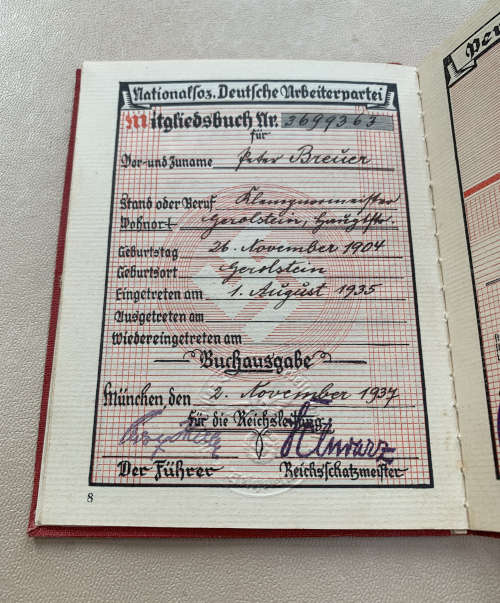 Nationalsoz. Deutsche Arbeiterpartei
Mitgliedsbuch Nr. 3699363
für
Vor- und Zuname Peter Breuer
Stand oder Beruf Klempnermeister
Wohnort Gerolstein, Hauptstr.
Geburtstag 26. November 1904
Geburtsort Gerolstein
Eingetreten am 1. August 1935
Ausgetreten am
Wiedereingetreten am
Buchausgabe
München, den 2. November 1937
Für die Reichsleitung
Schwarz
Der Führer Reichsschatzmeister
8